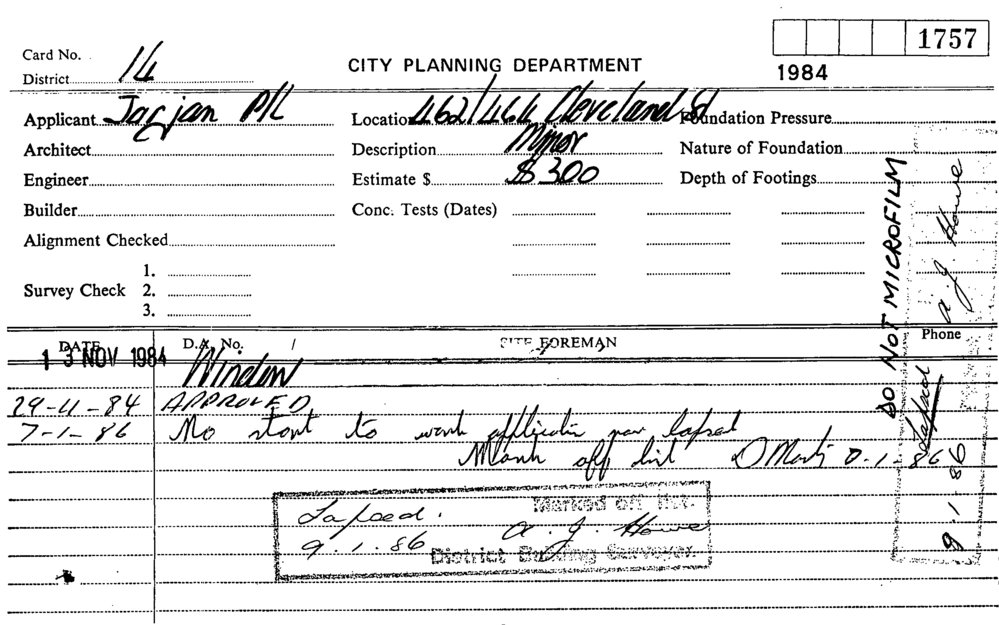 1757
1984
CITY PLANNING DEPARTMENT
Card No.
District 14
Applicant Jarjan P/L
Location 462/464 Cleveland St
Foundation Pressure
Architect
Description Minor
Nature of Foundation
Engineer
Estimate $ $300
Depth of Footings
Builder
Conc. Tests (Dates)
Alignment Checked
Survey Check
1.
2.
3.
DO NOT MICROFILM
DATE
D.A. No. /
SITE FOREMAN
Phone
13 NOV 1984 Window
29-11-84 APPROVED
7-1-86 No start to work application now lapsed
Mark off list D 1-86
Lapsed. Marked off list.
9.1.86 A. J. Howe
District Building Surveyor.
Lapsed
9.1.86
A. J. Howe